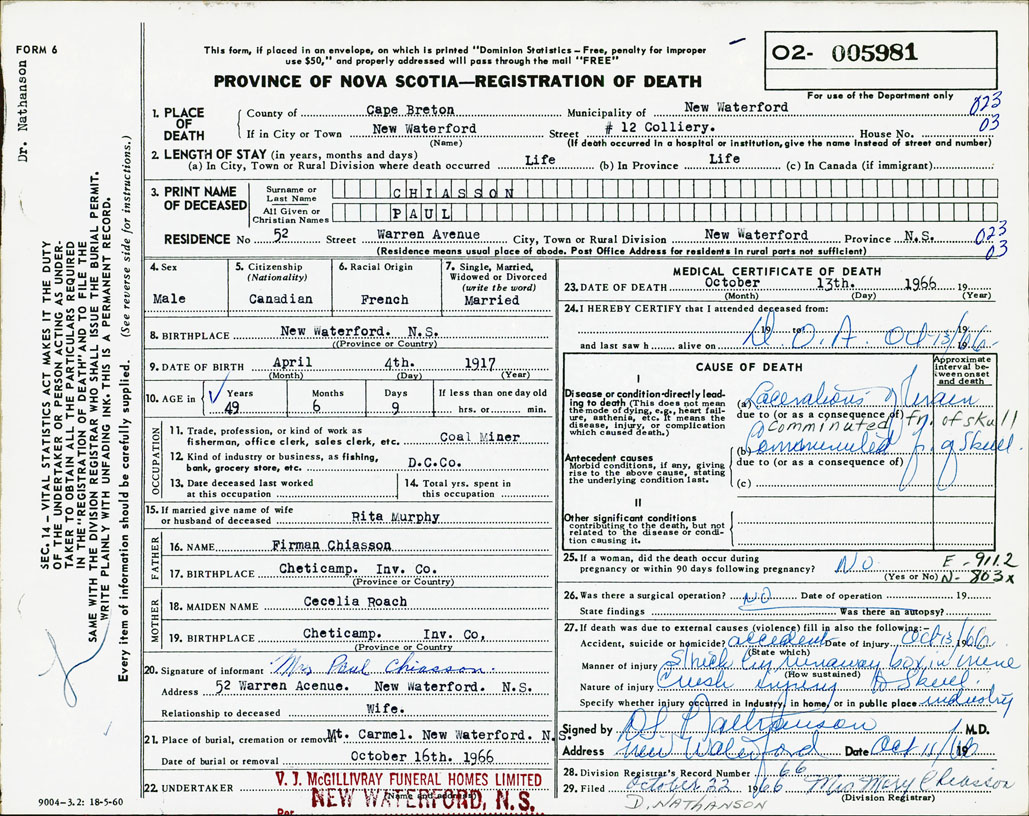 FORM 6
Dr. Nathanson
This form, if placed in an envelope, on which is printed "Dominion Statistics – Free, penalty for improper
use $50," and properly addressed will pass through the mail "FREE"
PROVINCE OF NOVA SCOTIA—REGISTRATION OF DEATH
02- 005981
For use of the Department only
SEC. 14 – VITAL STATISTICS ACT MAKES IT THE DUTY
OF THE UNDERTAKER OR PERSON ACTING AS UNDER-
TAKER TO OBTAIN ALL THE PARTICULARS REQUIRED
IN THE "REGISTRATION OF DEATH" AND TO FILE THE
SAME WITH THE DIVISION REGISTRAR WHO SHALL ISSUE THE BURIAL PERMIT.
WRITE PLAINLY WITH UNFADING INK. THIS IS A PERMANENT RECORD.
Every item of information should be carefully supplied. (See reverse side for instructions.)
1. PLACE OF DEATH
County of Cape Breton Municipality of New Waterford 023
If in City or Town New Waterford Street # 12 Colliery. House No. 03
(Name) (If death occurred in a hospital or institution, give the name instead of street and number)
2. LENGTH OF STAY (in years, months and days)
(a) In City, Town or Rural Division where death occurred Life (b) In Province Life (c) In Canada (if immigrant)
3. PRINT NAME OF DECEASED
Surname or Last Name CHIASSON
All Given or Christian Names PAUL
RESIDENCE No 52 Street Warren Avenue City, Town or Rural Division New Waterford Province N.S. 023
03
(Residence means usual place of abode. Post Office Address for residents in rural parts not sufficient)
4. Sex
Male
5. Citizenship
(Nationality)
Canadian
6. Racial Origin
French
7. Single, Married,
Widowed or Divorced
(write the word)
Married
8. BIRTHPLACE New Waterford. N.S.
(Province or Country)
9. DATE OF BIRTH April 4th. 1917
(Month) (Day) (Year)
10. AGE in Years Months Days If less than one day old
49 6 9 hrs. or min.
OCCUPATION
11. Trade, profession, or kind of work as
fisherman, office clerk, sales clerk, etc. Coal Miner
12. Kind of industry or business, as fishing,
bank, grocery store, etc. D.C.Co.
13. Date deceased last worked
at this occupation
14. Total yrs. spent in
this occupation
15. If married give name of wife
or husband of deceased Rita Murphy
FATHER
16. NAME Firman Chiasson
17. BIRTHPLACE Cheticamp. Inv. Co.
(Province or Country)
MOTHER
18. MAIDEN NAME Cecelia Roach
19. BIRTHPLACE Cheticamp. Inv. Co,
(Province or Country)
20. Signature of informant Mrs Paul Chiasson.
Address 52 Warren Acenue. New Waterford. N.S.
Relationship to deceased Wife.
21. Place of burial, cremation or removal Mt. Carmel. New Waterford. N.S.
Date of burial or removal October 16th. 1966
22. UNDERTAKER V. J. McGILLIVRAY FUNERAL HOMES LIMITED
NEW WATERFORD, N.S.
(Name and address)
Per
9004-3.2: 18-5-60
MEDICAL CERTIFICATE OF DEATH
23. DATE OF DEATH October 13th. 1966 19
(Month) (Day) (Year)
24. I HEREBY CERTIFY that I attended deceased from:
19 to 19
and last saw h alive on D.O.A. Oct 13/66 19
CAUSE OF DEATH
Approximate
interval be-
tween onset
and death
I
Disease or condition directly lead-
ing to death (This does not mean
the mode of dying, e.g., heart fail-
ure, asthenia, etc. It means the
disease, injury, or complication
which caused death.)
(a) Lacerations of brain
due to (or as a consequence of)
Comminuted fr. of skull
(b) Comminuted fr. of Skull
Antecedent causes
Morbid conditions, if any, giving
rise to the above cause, stating
the underlying condition last.
due to (or as a consequence of)
(c)
II
Other significant conditions
contributing to the death, but not
related to the disease or condi-
tion causing it.
25. If a woman, did the death occur during
pregnancy or within 90 days following pregnancy? No
(Yes or No)
E - 911.2
N- 803x
26. Was there a surgical operation? No Date of operation 19
State findings Was there an autopsy?
27. If death was due to external causes (violence) fill in also the following:
Accident, suicide or homicide? accident Date of injury Oct 13, 1966
(State which)
Manner of injury Struck by runaway box in mine
(How sustained)
Nature of injury Crush injury to Skull.
Specify whether injury occurred in industry, in home, or in public place industry
Signed by M.D.
Address New Waterford Date Oct 19
28. Division Registrar's Record Number 66
29. Filed October 22 1966 Mrs Mary Chiasson
(Division Registrar)
D. NATHANSON